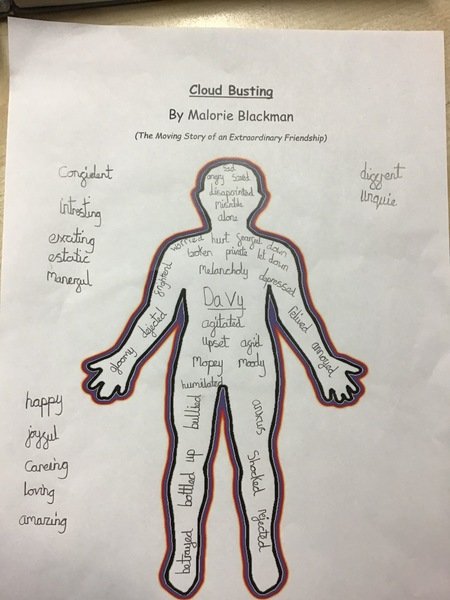 Cloud Busting
By Malorie Blackman
(The Moving Story of an Extraordinary Friendship)
Confident
Intresting
exciting
estatic
Manerful
diffrent
Unquie
sad
angry Scared
disapointed
misirible
alone
worried hurt down
broken private let down
frightend Melancholy depressed
Davy
gloomy dejected agitated annoyed
upset agid
Mopey Moody
humilated
bullied anxius
bottled up Shocked
betrayed rejected
happy
joyful
Careing
loving
amazing